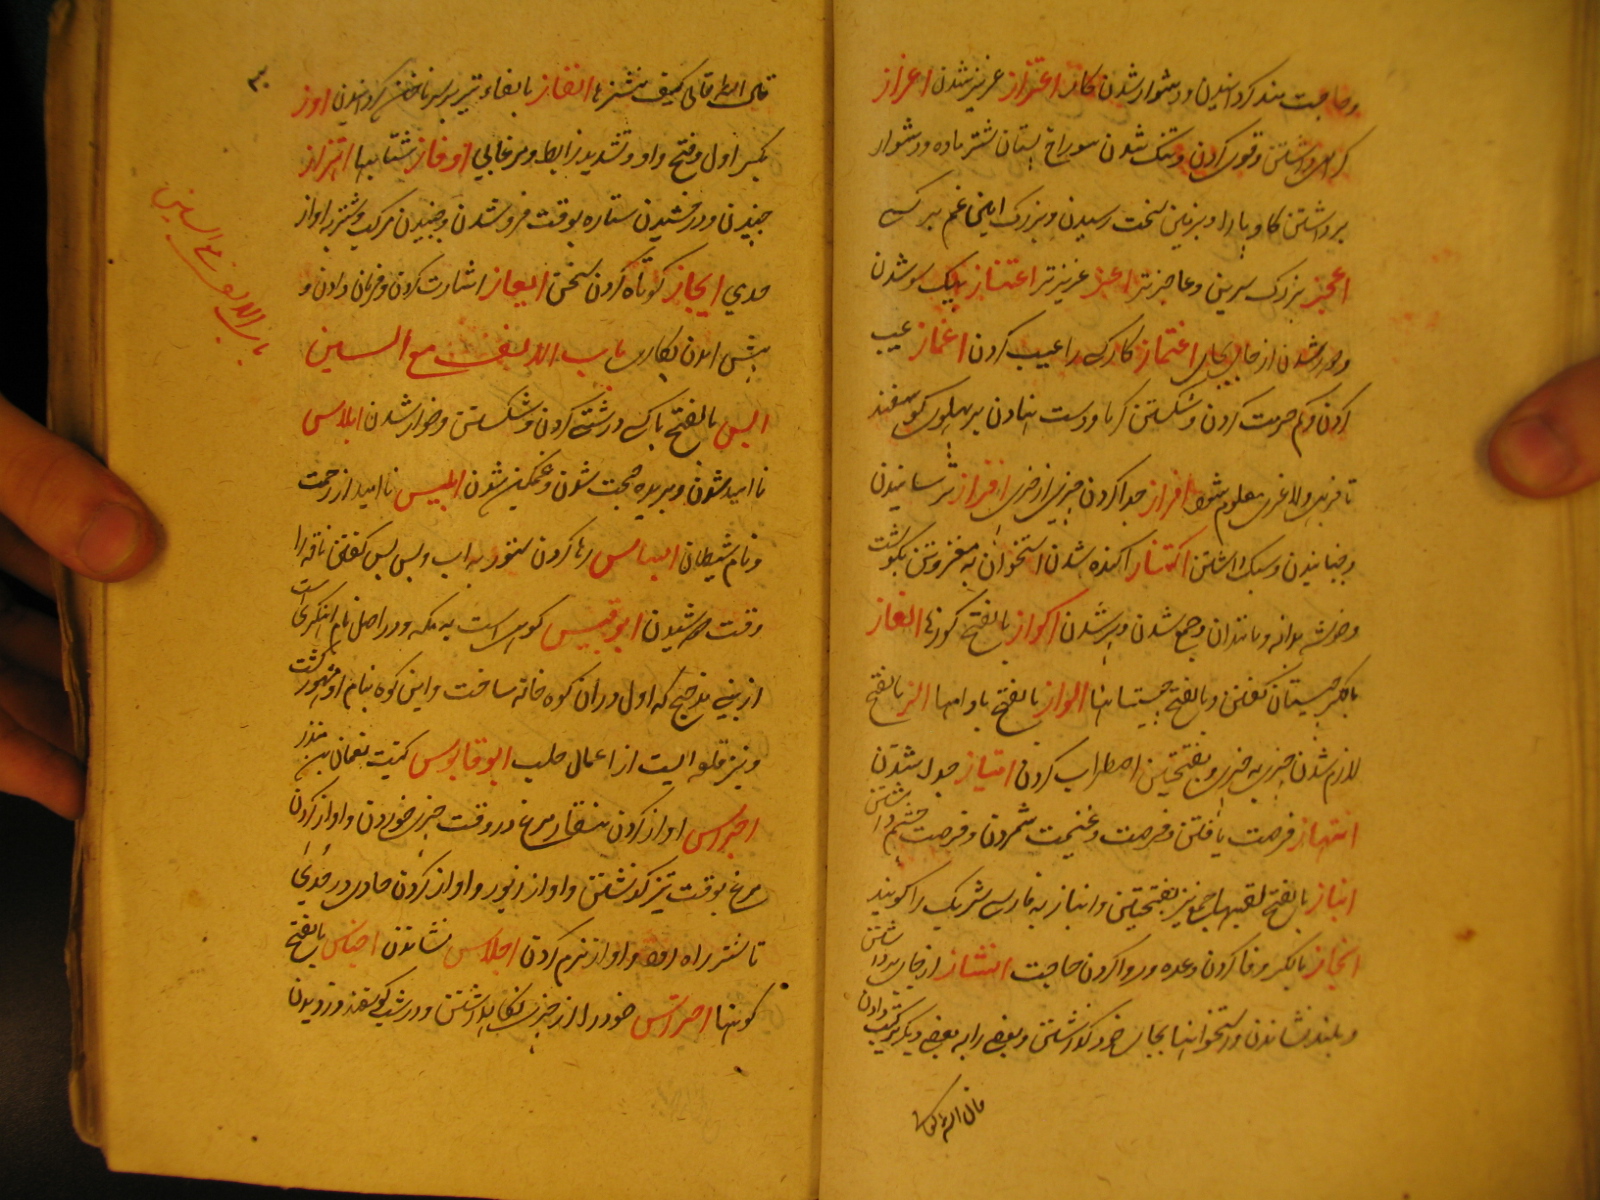 و حاجت مند کردانیدن و دشوار شدن کار اعتزاز عزیز شدن اعزاز
کرامی داشتن و قوی کردن و تنک شدن سوراخ پستان شتر ماده و دشوار
برداشتن کاو بار را و بزمین سخت رسیدن و بزرک
اعجز بزرک سرین و عاجز تر اعز عزیز تر اعتناز بیک سو شدن
و دور شدن از جای بجای اغتماز کار کسی را عیب کردن اغماز عیب
کردن و کم حرمت کردن و شکستن کرما و دست نهادن بر پهلوی کوسفند
تا فربهی و لاغری معلوم شود افراز جدا کردن چیزی از چیزی افزاز ترسانیدن
و جنبانیدن و سبک داشتن اکتناز اکنده شدن استخوان به مغز و تن بکوشت
و خوشه بدانه و مانند ان و جمع شدن و پر شدن اکواز بالفتح کوزها الغاز
بالکسر چیستان کفتن و بالفتح چیستانها الواز بالفتح بادامها الز بالفتح
لازم شدن چیزی به چیزی و بفتحتین اضطراب کردن امتیاز جدا شدن
انتهاز فرصت یافتن و فرصت و غنیمت شمردن و فرصت چشم داشتن
انباز بالفتح لقبها جمع نبز بفتحتین و انباز به فارسی شریک را کویند
انجاز بالکسر وفا کردن وعده و روا کردن حاجت انشاز از جای برداشتن
و بلند نشاندن و استخوانها بجای خود کذاشتن و بعضی را به بعضی دیکر ترکیب دادن
قال الله تعالی
۳۰
قال الله تعالی کیف ننشزها انفاز بالفاء تیر بر سر ناخن کردانیدن اوز
بکسر اول و فتح واو و تشدید زا بط و مرغابی اوفاز شتابها اهتزاز
جنبیدن و درخشیدن ستاره بوقت فرو شدن و جنبیدن مرکب و شتر به اواز
حدی ایجاز کوتاه کردن سخن ایعاز اشارت کردن و فرمان دادن و
پیش امدن بکاری باب الالف مع السین
باب الالف مع السین
ابس بالفتح با کسی درشتی کردن و شکستن و خوار شدن ابلاس
نا امید شدن و بریده حجت شدن و غمکین شدن ابلیس نا امید از رحمت
و نام شیطان ابساس رها کردن ستور به اب و بس بس کفتن ناقه را
وقت دوشیدن ابو قبیس کوهی است به مکه و در اصل نام اهنکری است
از بنی مذحج که اول در ان کوه خانه ساخت و این کوه بنام او مشهور کشت
و نیز قلعه ایست از اعمال حلب ابو قابوس کنیت نعمان بن منذر
اجراس اواز کردن منقار مرغ در وقت چیز خوردن و اواز کردن
مرغ بوقت تیز کذشتن و اواز زیور و اواز کردن حادی در حدی
تا شتر راه رود و اواز نرم کردن اجلاس نشاندن اجناس بالفتح
کونها احتراس خود را از چیزی نکاه داشتن و در شب کوسفند دزدیدن